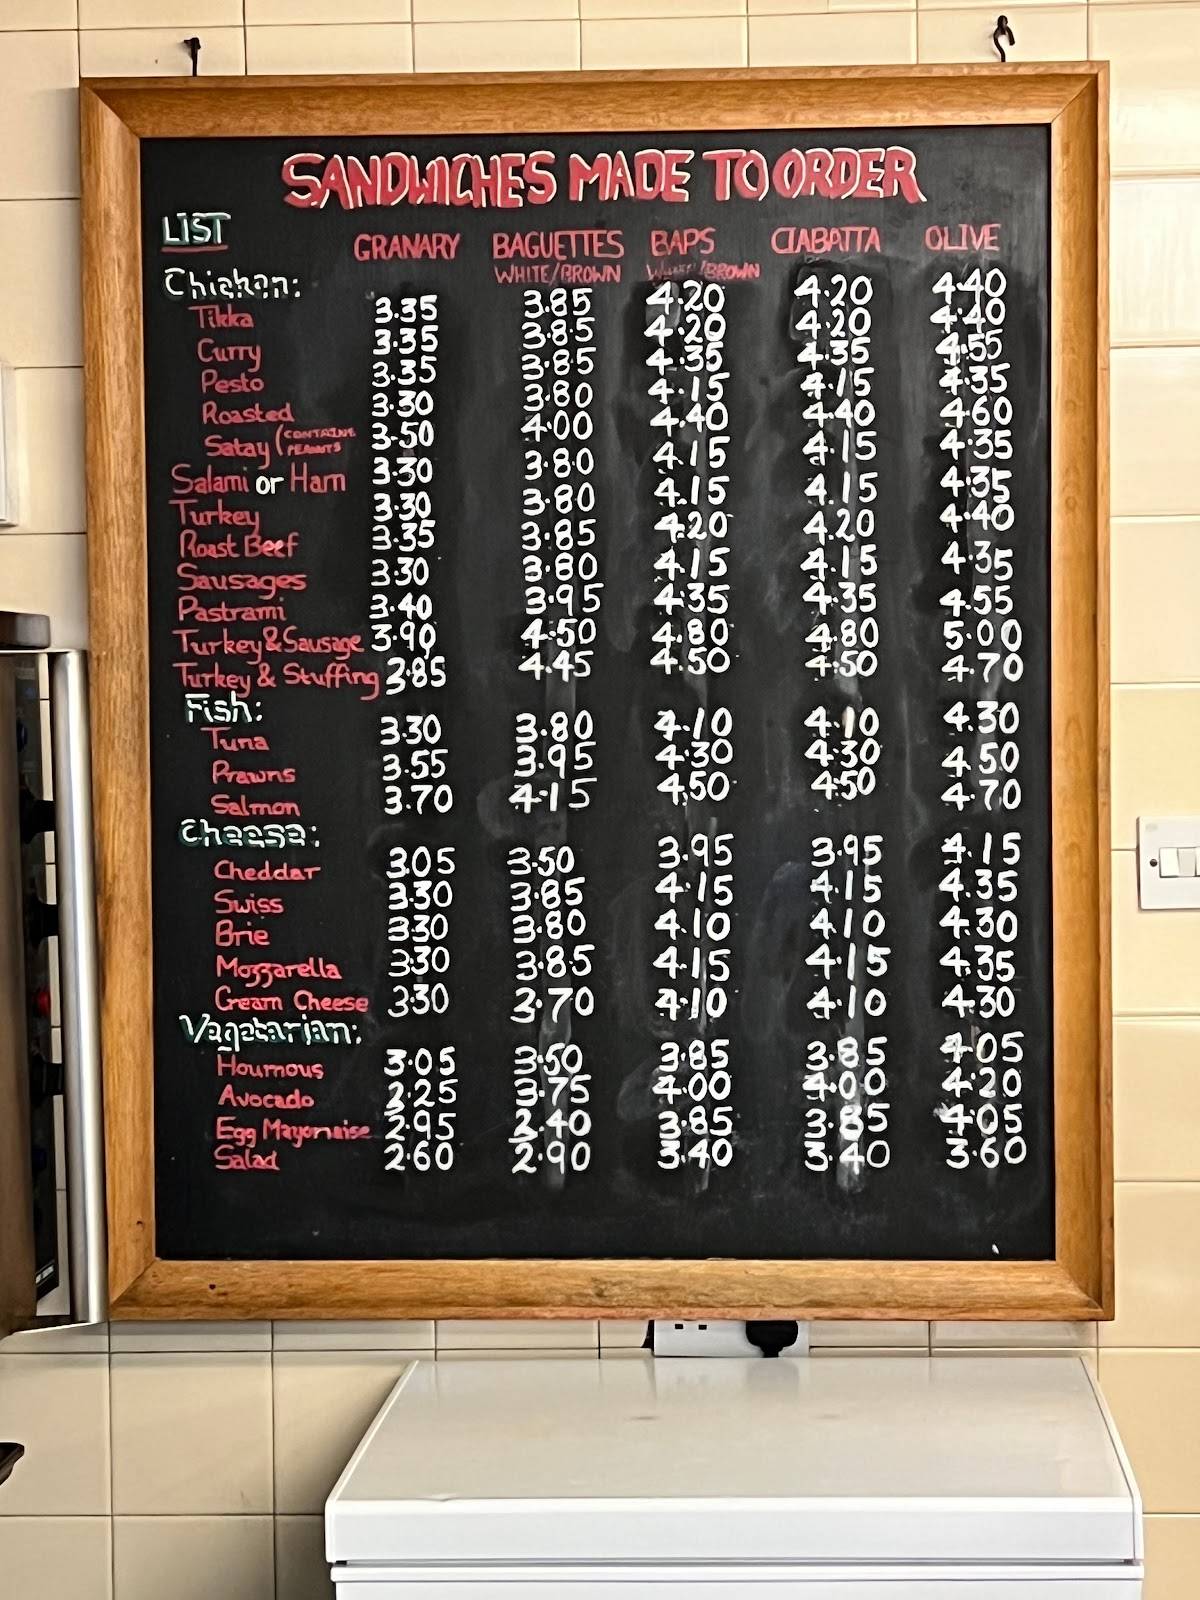 SANDWICHES MADE TO ORDER
LIST GRANARY BAGUETTES BAPS CIABATTA OLIVE
WHITE/BROWN WHITE/BROWN
Chicken:
Tikka 3.35 3.85 4.20 4.20 4.40
Curry 3.35 3.85 4.20 4.20 4.40
Pesto 3.35 3.85 4.35 4.35 4.55
Roasted 3.30 3.80 4.15 4.15 4.35
Satay (CONTAINS PEANUTS 3.50 4.00 4.40 4.40 4.60
Salami or Ham 3.30 3.80 4.15 4.15 4.35
Turkey 3.30 3.80 4.15 4.15 4.35
Roast Beef 3.35 3.85 4.20 4.20 4.40
Sausages 3.30 3.80 4.15 4.15 4.35
Pastrami 3.40 3.95 4.35 4.35 4.55
Turkey & Sausage 3.90 4.50 4.80 4.80 5.00
Turkey & Stuffing 3.85 4.45 4.50 4.50 4.70
Fish:
Tuna 3.30 3.80 4.10 4.10 4.30
Prawns 3.55 3.95 4.30 4.30 4.50
Salmon 3.70 4.15 4.50 4.50 4.70
Cheese:
Cheddar 3.05 3.50 3.95 3.95 4.15
Swiss 3.30 3.85 4.15 4.15 4.35
Brie 3.30 3.80 4.10 4.10 4.30
Mozzarella 3.30 3.85 4.15 4.15 4.35
Cream Cheese 3.30 3.70 4.10 4.10 4.30
Vegetarian:
Houmous 3.05 3.50 3.85 3.85 4.05
Avocado 2.25 3.75 4.00 4.00 4.20
Egg Mayonaise 2.95 2.40 3.85 3.85 4.05
Salad 2.60 2.90 3.40 3.40 3.60